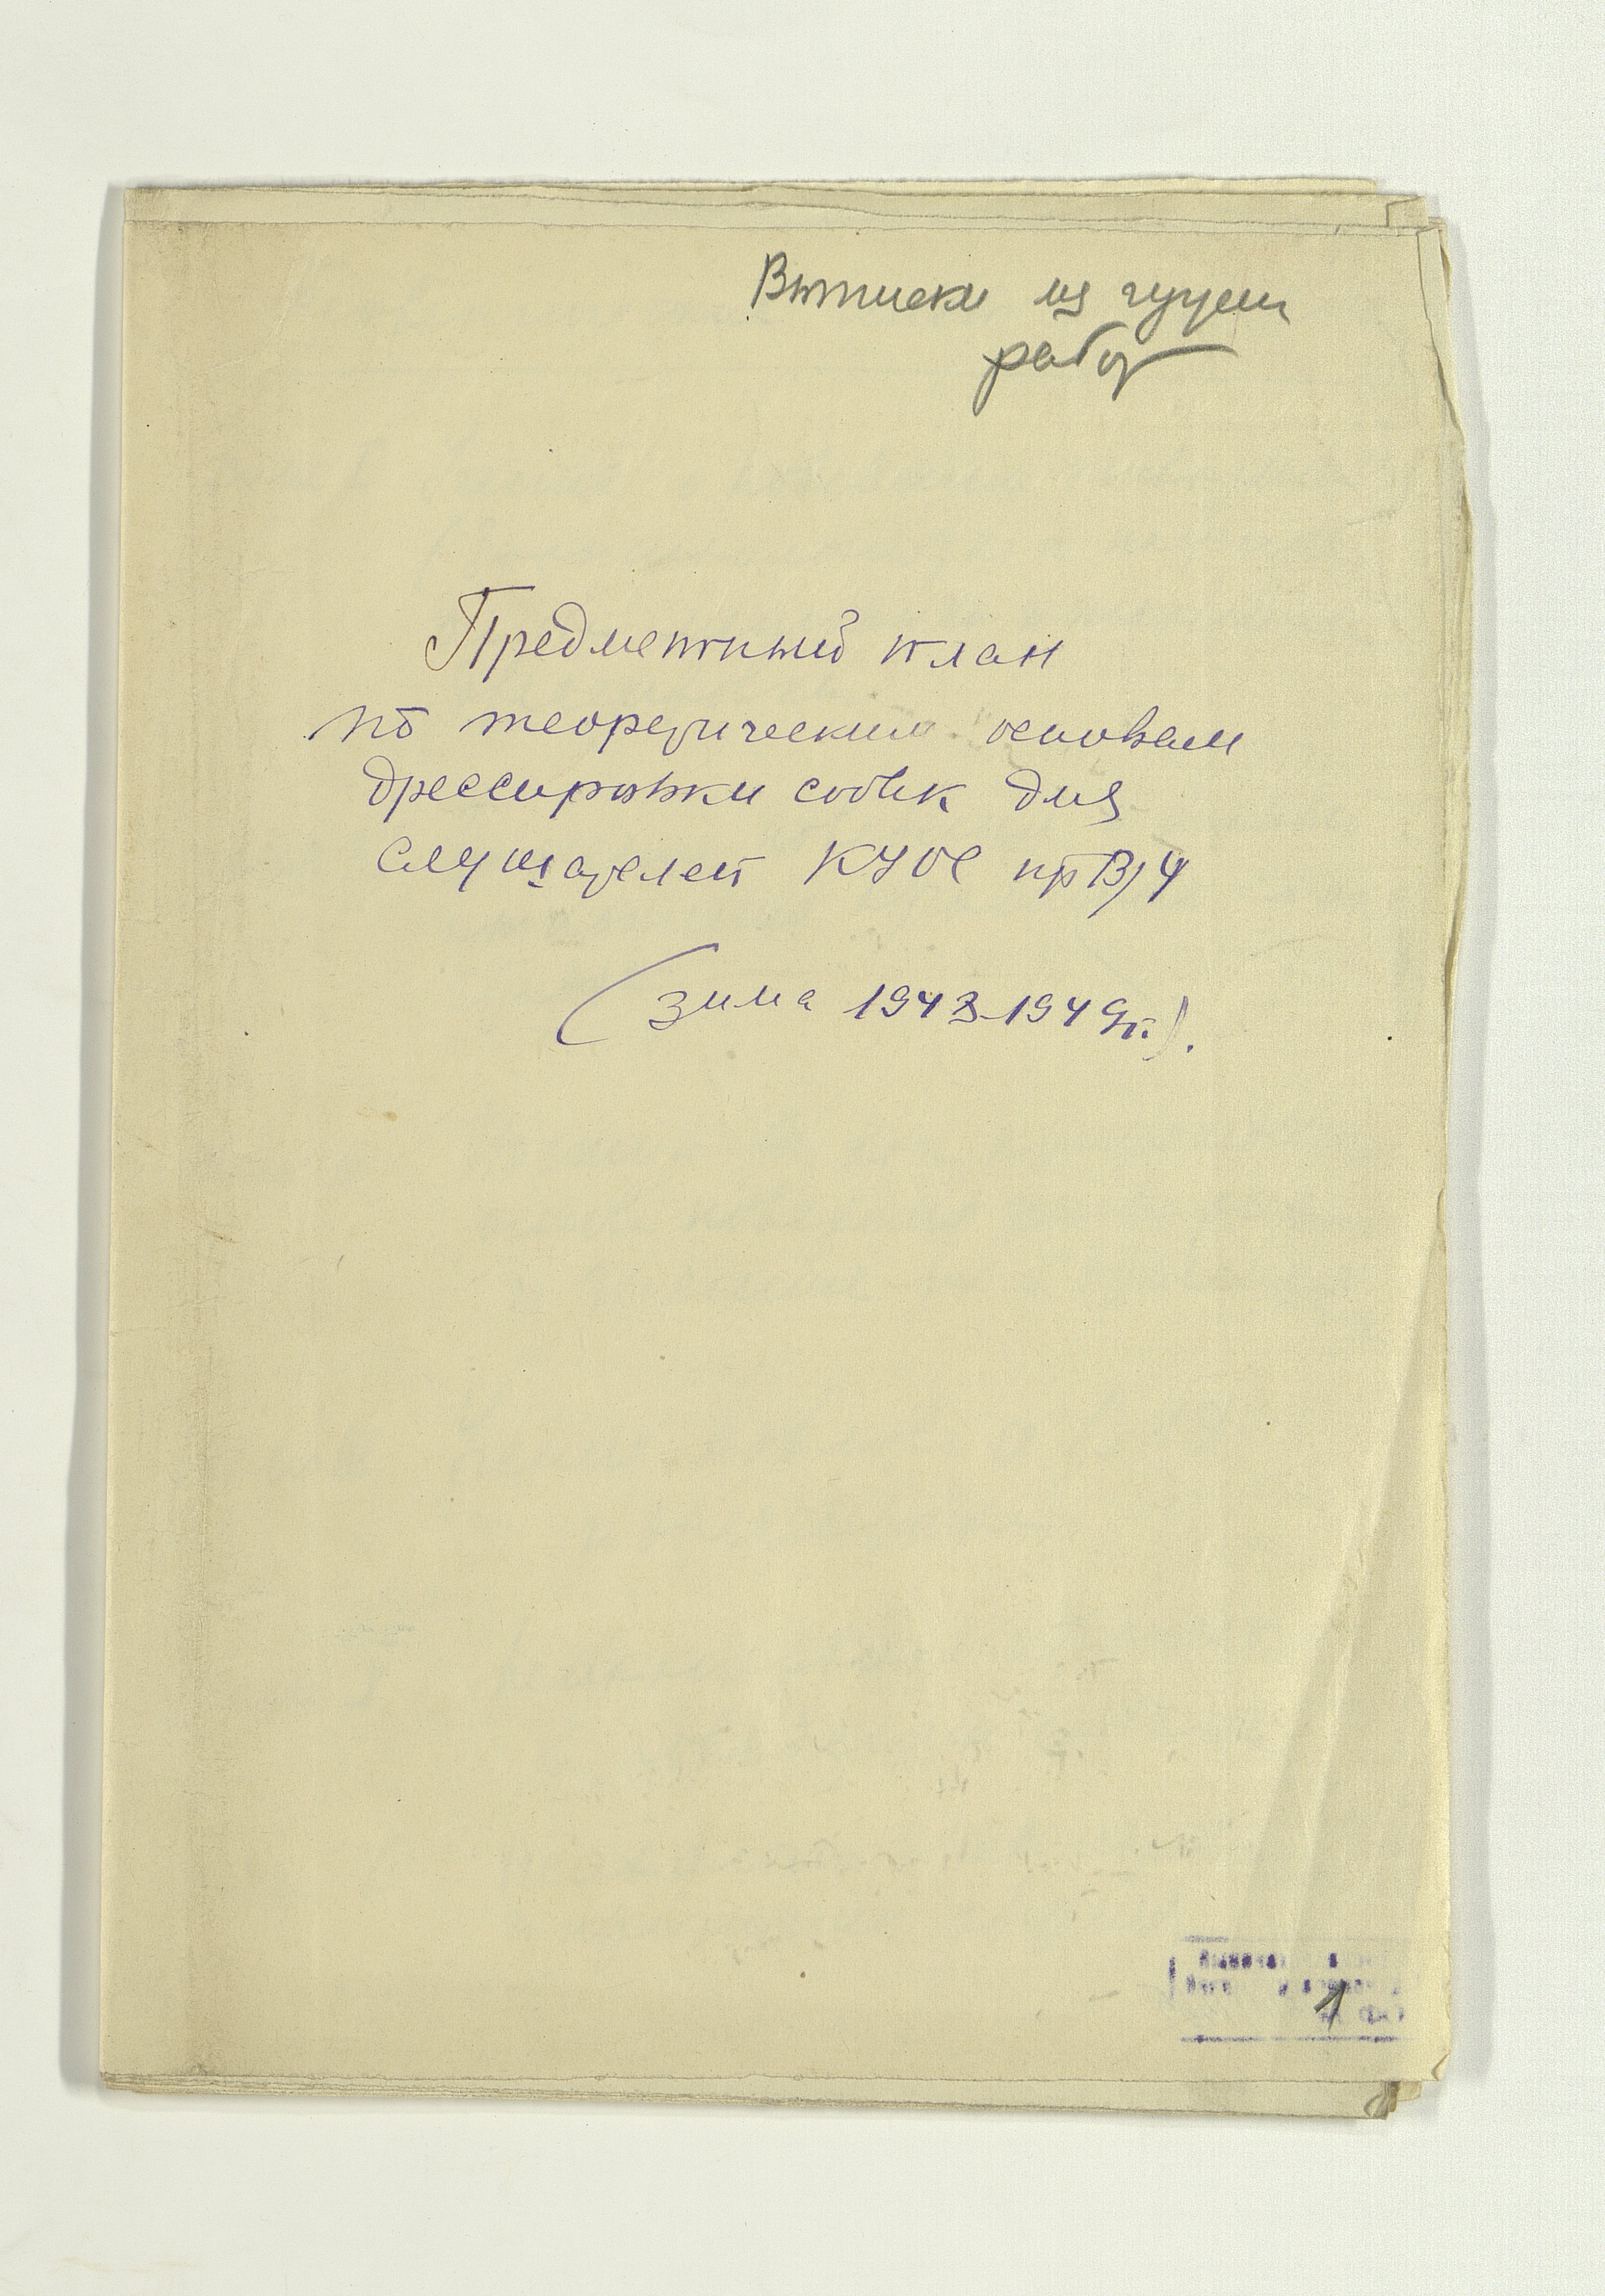 Выписки из чужих
работ
Предметный план
по теоретическим основам
дрессировки собак для
слушателей КУОС при В/Ч
(зима 1948-1949 гг.).
1